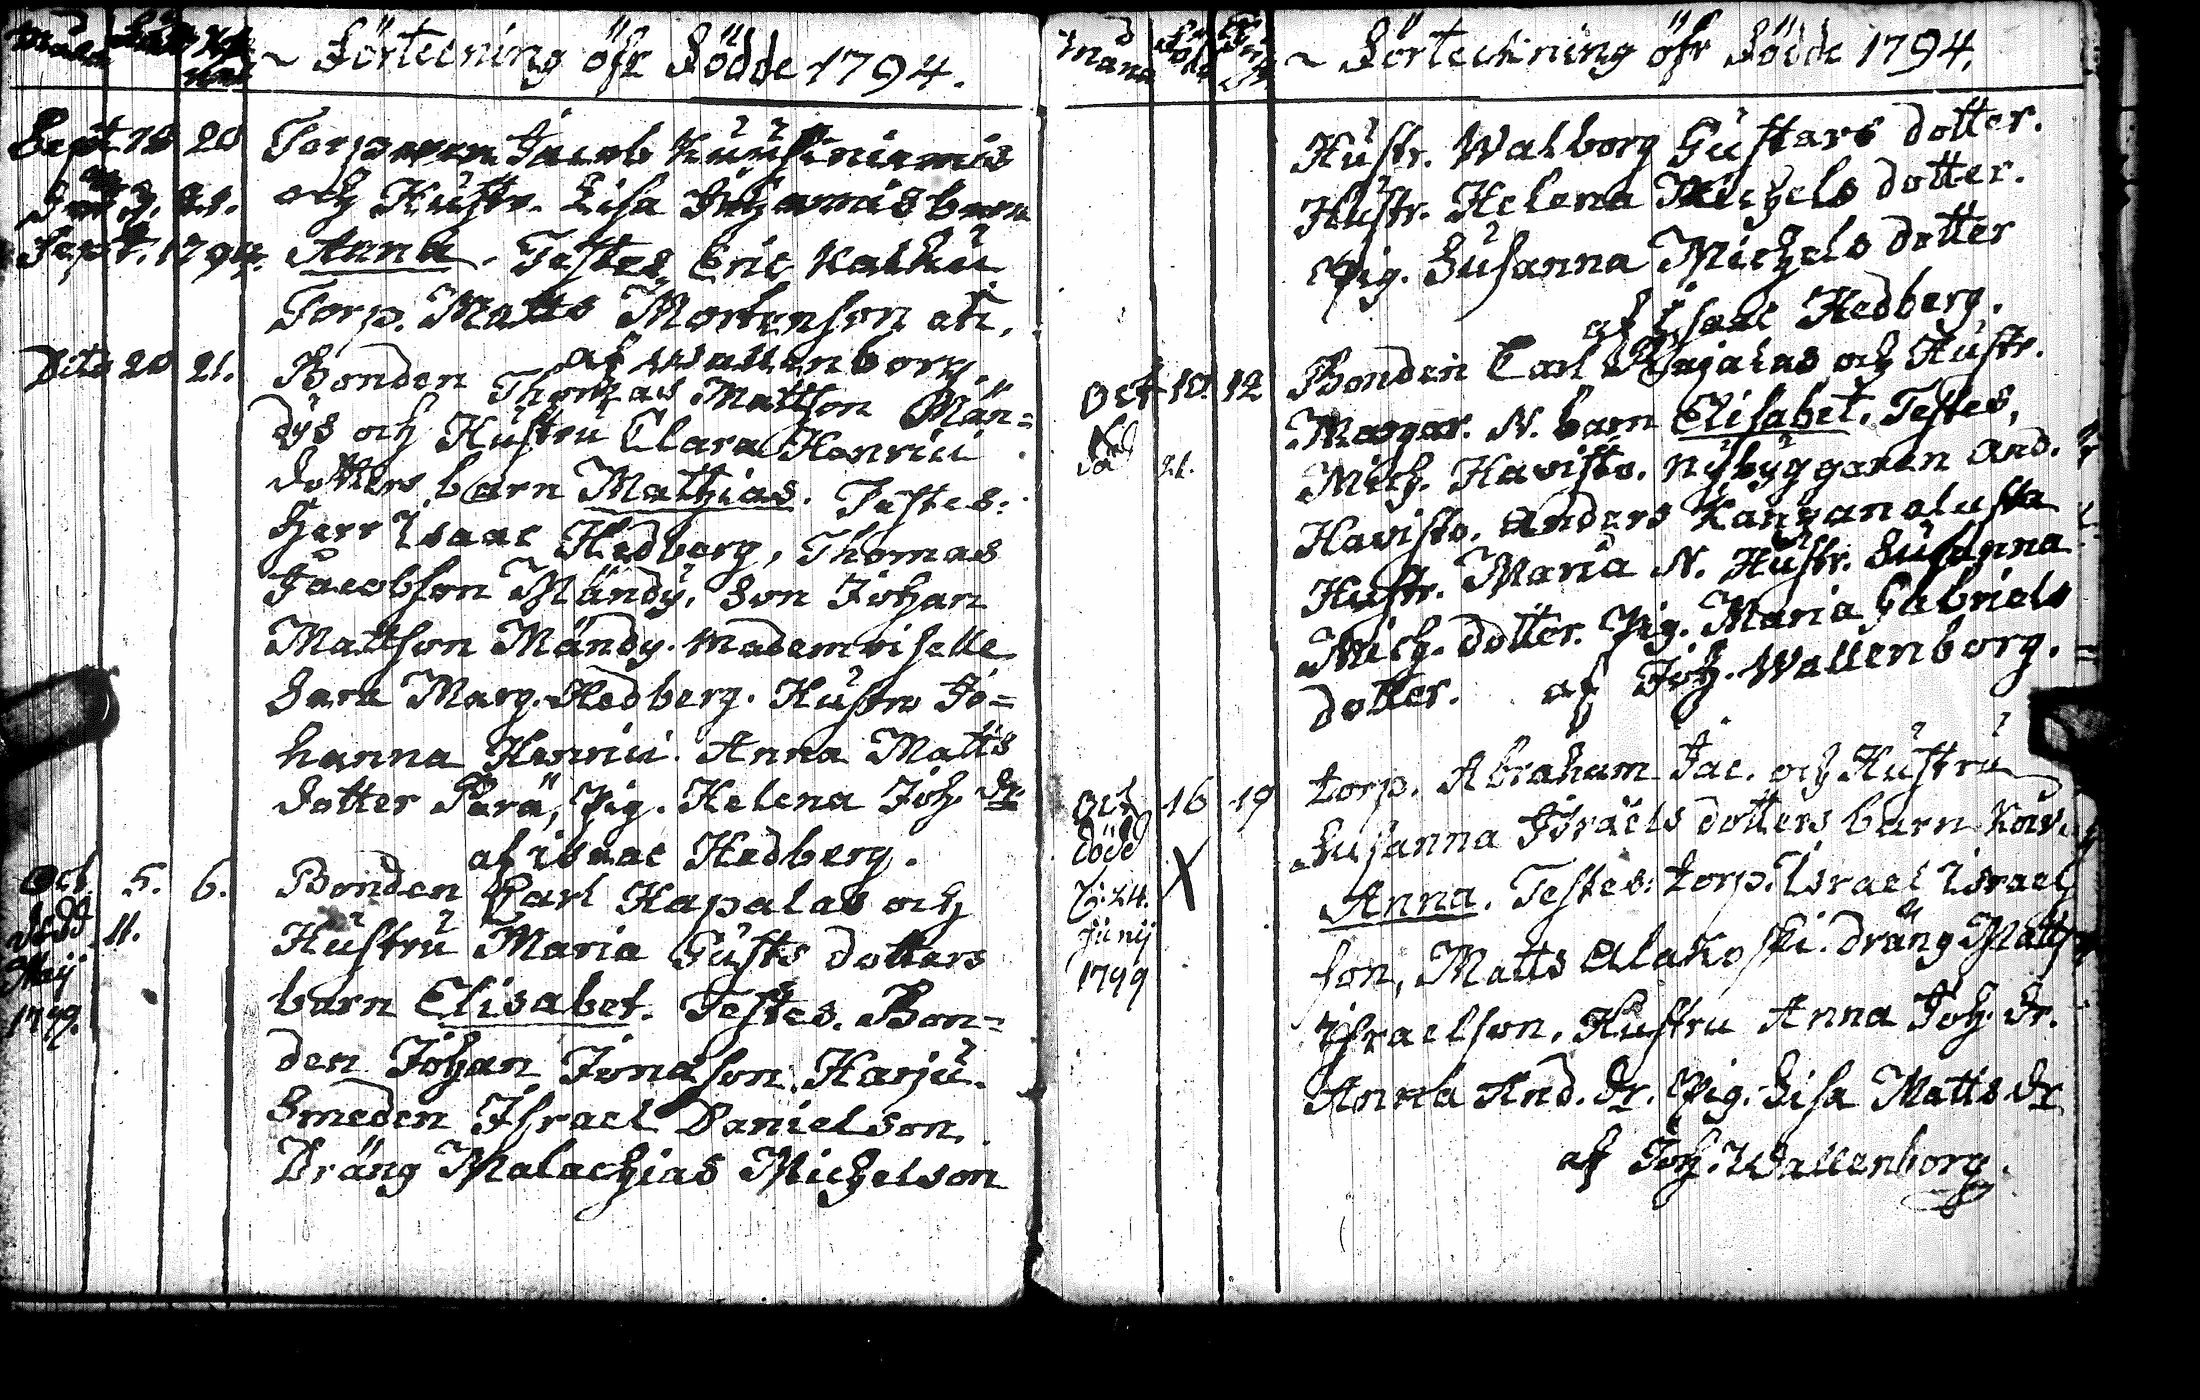 Månad Född Xst nad ~ Förtecning öfr Födde 1794.
Sept. 18 20 Torparen Jacob
och Hustr. Lisa barn
Sept. 1794. Anna. Testes Eric
Torp. Matts Mortenson etc.
af Wallenborg.
Dito 20 21. Bonden Thomas Mattson Män=
dys och Hustru Clara Henrici
dotters barn Mathias. Testes:
Herr Isaac Hedberg, Thomas
Jacobson Mändy, Son Johan
Mattson Mändy. Mademoiselle
Sara Marg. Hedberg. Hustru Jo=
hanna Henrici. Anna Matts
dotter Perä, Pig. Helena Joh. dr.
af Isaac Hedberg.
Oct. 5. 6. Bonden Carl Hapalas och
dödd 11. Hustru Maria Gusts dotters
Maij barn Elisabet. Testes. Bon=
1799. den Johan Jonason Harju.
Smeden Israel Danielson.
Dräng Malachias Michelson
Månd ~ Förteckning öfr Födde 1794.
Hustr. Walborg Gustavs dotter.
Hustr. Helena Michels dotter.
Pig. Susanna Michels dotter
af Isaac Hedberg.
Oct 10. 12 Bonden Carl och Hustr.
Margar. N. barn Elisabet. Testes,
död 21. Mich. Havisto. nybyggaren And.
Havisto. Anders Kanganalusta
Hustr. Maria N. Hustr. Susanna
Mich. dotter. Pig. Maria Gabriels
dotter. af Joh. Wallenborg.
Oct 16 19 torp. Abraham Jac. och Hustru
dödd X Susanna Israels dotters barn
D. 24. Anna. Testes: torp. Israel Israel
Junij son, Matts Alakoski. dräng Matts
1799 Israelson. Hustru Anna Joh. dr.
Anna And. dr. Pig. Lisa Matts dr
af Joh. Wallenborg.